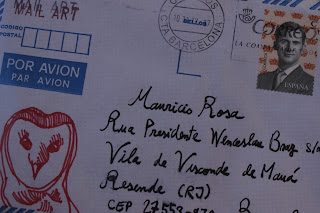 MAIL ART
CÓDIGO
POSTAL
POR AVIÓN
PAR AVION
CTA BARCELONA
ESPAÑA
Mauricio Rosa
Rua Presidente Wenceslau Braz s/n
Vila de Visconde de Mauá
Resende (RJ)
CEP 27553-970